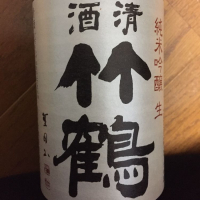 清酒
竹鶴
純米吟醸 生